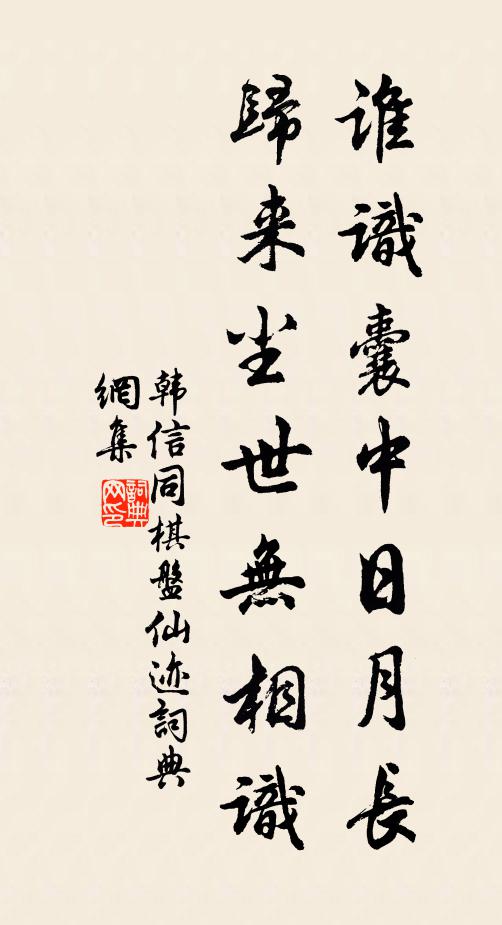 誰識囊中日月長
歸来尘世無相識
韩信同棋盤仙迹詞典
網集
詞典
网印